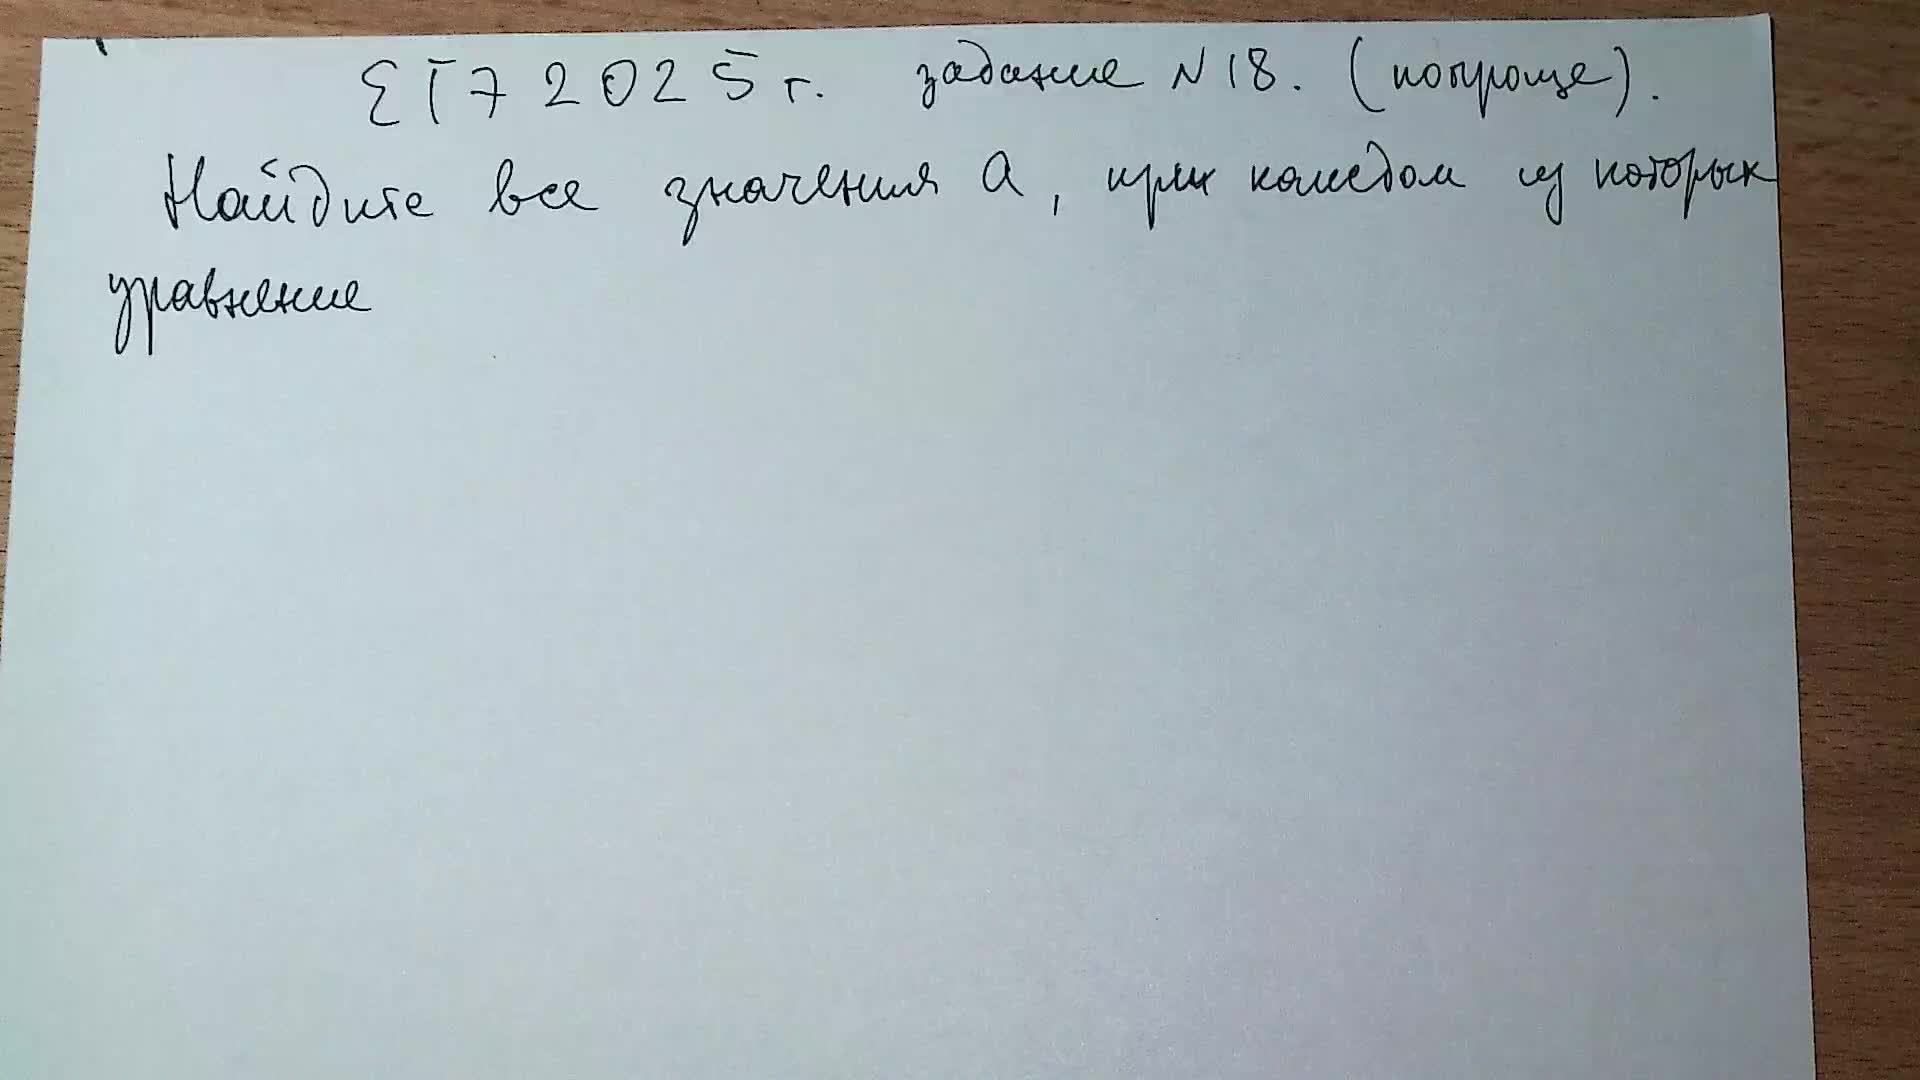 ЕГЭ 2025 г. задание №18. (попроще).
Найдите все значения а, при каждом из которых
уравнение